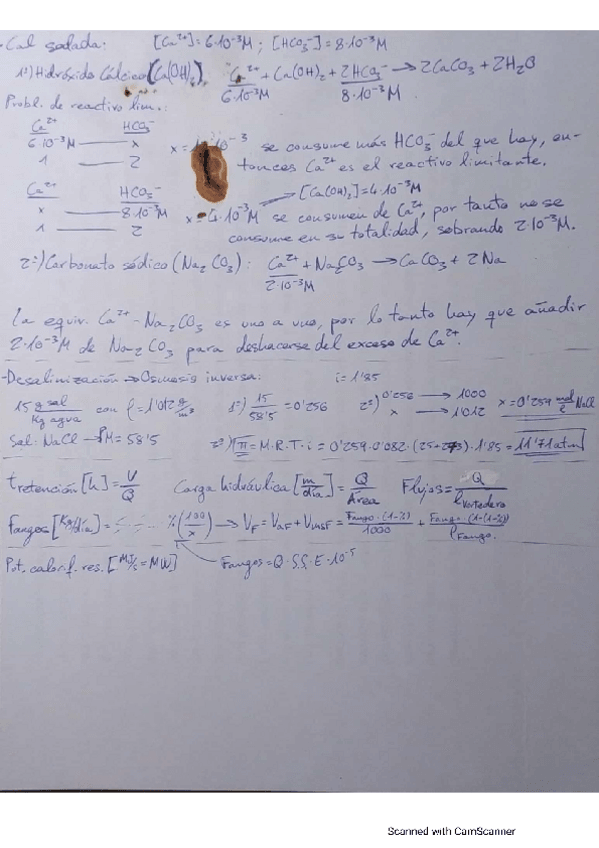 - Cal sodada: [Ca²⁺]=6·10⁻³M ; [HCO₃⁻]=8·10⁻³M
1º) Hidróxido Cálcico (Ca(OH)₂) Ca²⁺ + Ca(OH)₂ + 2HCO₃⁻ → 2CaCO₃ + 2H₂O
6·10⁻³M 8·10⁻³M
Probl. de reactivo lim.:
Ca²⁺ HCO₃⁻
6·10⁻³M — x
1 — 2
x= se consume más HCO₃⁻ del que hay, en-
tonces Ca²⁺ es el reactivo limitante.
Ca²⁺ HCO₃⁻ → [Ca(OH)₂]=4·10⁻³M
x — 8·10⁻³M x=4·10⁻³M se consumen de Ca²⁺, por tanto no se
1 — 2 consume en su totalidad, sobrando 2·10⁻³M.
2º) Carbonato sódico (Na₂CO₃): Ca²⁺ + Na₂CO₃ → CaCO₃ + 2Na
2·10⁻³M
La equiv. Ca²⁺ - Na₂CO₃ es uno a uno, por lo tanto hay que añadir
2·10⁻³M de Na₂CO₃ para deshacerse del exceso de Ca²⁺.
- Desalinización → Osmosis inversa: i=1'85
15 g sal / Kg agua con ρ=1'012 1º) 15/58'5=0'256 2º) 0'256 → 1000
x → 1'012 x=0'259 mol/l NaCl
Sal: NaCl → PM=58'5 2º) π=M·R·T·i=0'259·0'082·(25+273)·1'85=11'71atm
tretención [h]=V/Q Carga hidráulica [m/día]=Q/Área Flujos=Q/ℓvertedero
Fangos [Kg/día]= %(100/x) → V_F = = Fango·(1-%)/1000 + Fango·(1-(1-%))/ρFango.
Pot. caloríf. res. [MJ/s=MW] Fangos=Q·S.S·E·10⁻⁵
Scanned with CamScanner